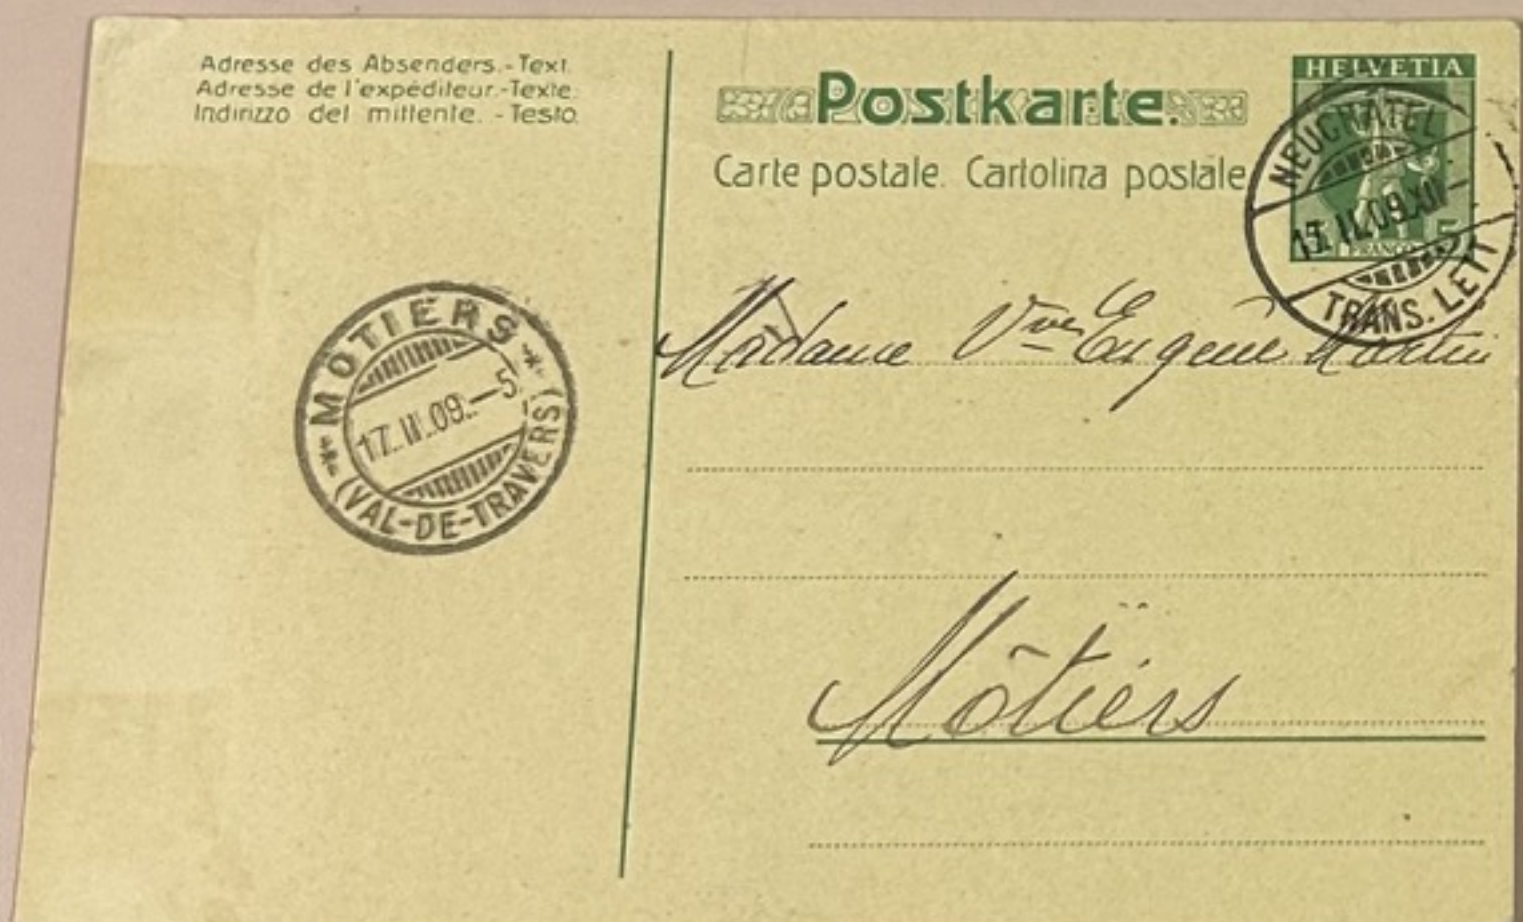 Adresse des Absenders.-Text.
Adresse de l'expéditeur.-Texte.
Indirizzo del mittente. - Testo.
Postkarte.
Carte postale. Cartolina postale.
HELVETIA
FRANCO 5
NEUCHATEL
17. II. 09. XII -
TRANS. LETT
MOTIERS
17. II. 09. - 5
(VAL-DE-TRAVERS)
Madame Vve Eugène Martin
Môtiers